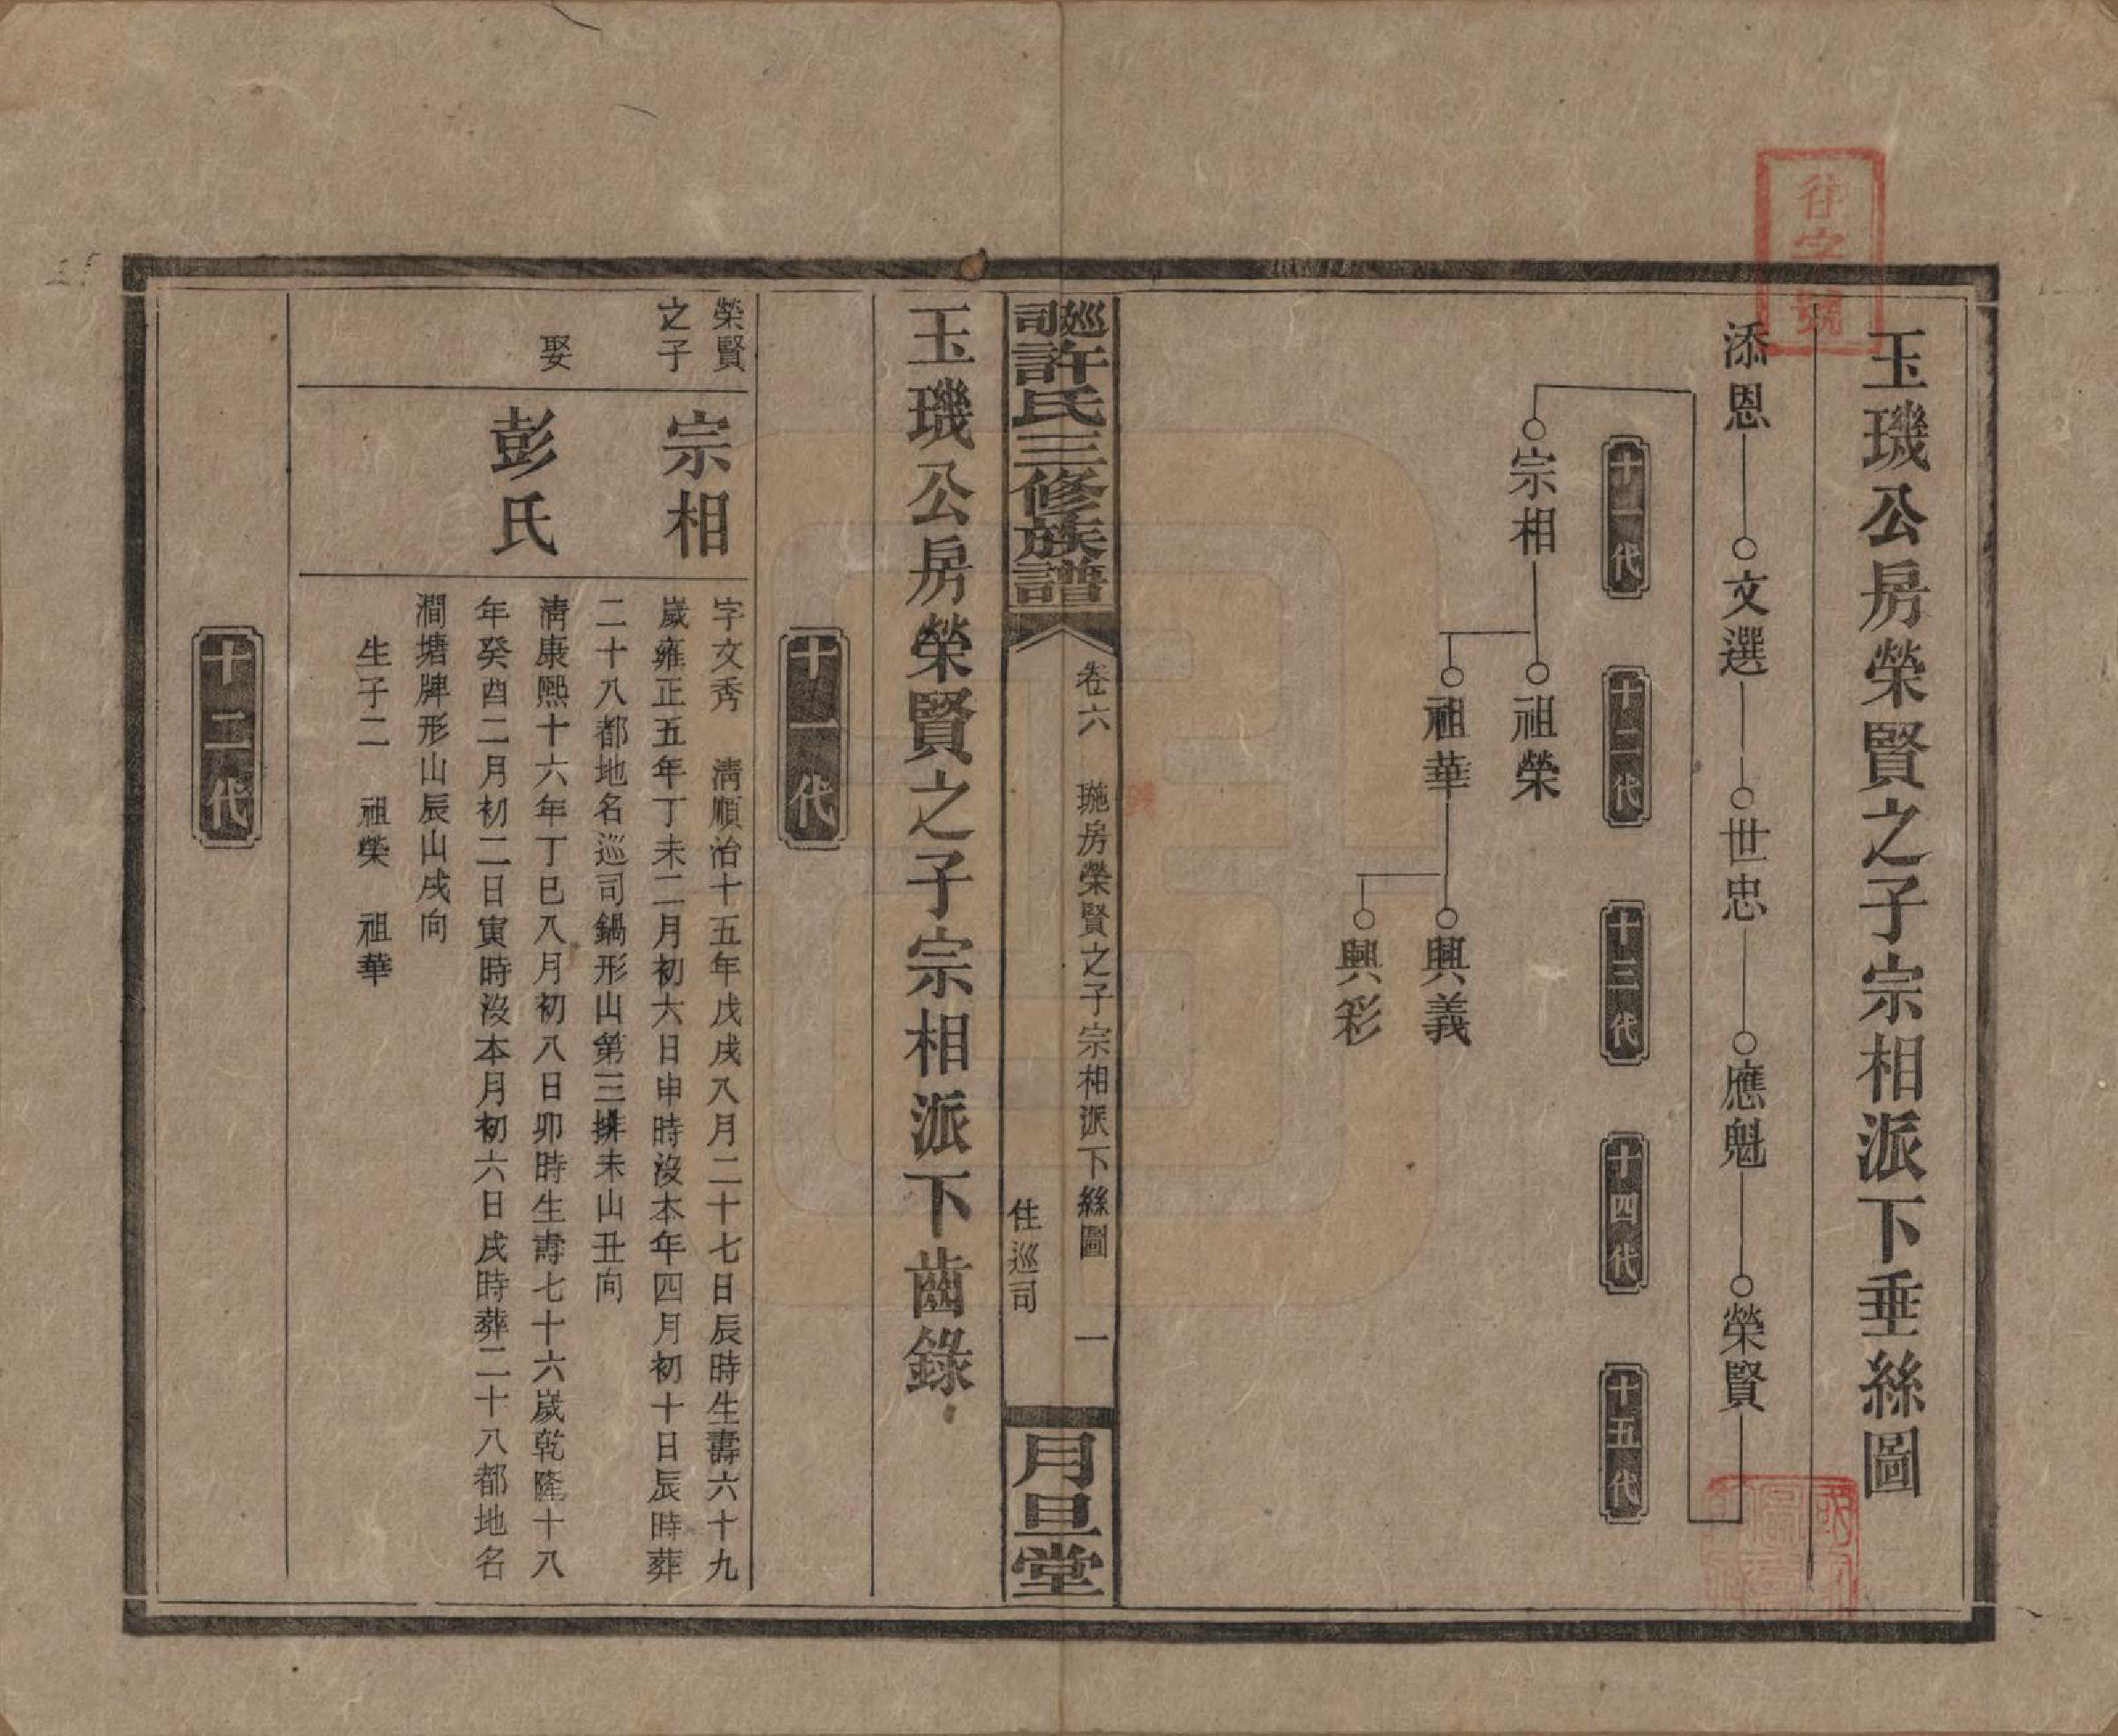 往字號
玉璣公房榮賢之子宗相派下垂絲圖
添恩 文選 世忠 應魁 榮賢
十一代 十二代 十三代 十四代 十五代
宗相 祖榮
祖華 興義
興彩
巡司許氏三修族譜
卷六 璣房榮賢之子宗相派下絲圖 一
住巡司
月旦堂
玉璣公房榮賢之子宗相派下齒錄
十一代
榮賢
之子
宗相
字文秀 清順治十五年戊戌八月二十七日辰時生壽六十九
歲雍正五年丁未二月初六日申時沒本年四月初十日辰時葬
二十八都地名巡司鍋形山第三排未山丑向
娶
彭氏
清康熙十六年丁巳八月初八日卯時生壽七十六歲乾隆十八
年癸酉二月初二日寅時沒本月初六日戌時葬二十八都地名
澗塘牌形山辰山戌向
生子二 祖榮 祖華
十二代